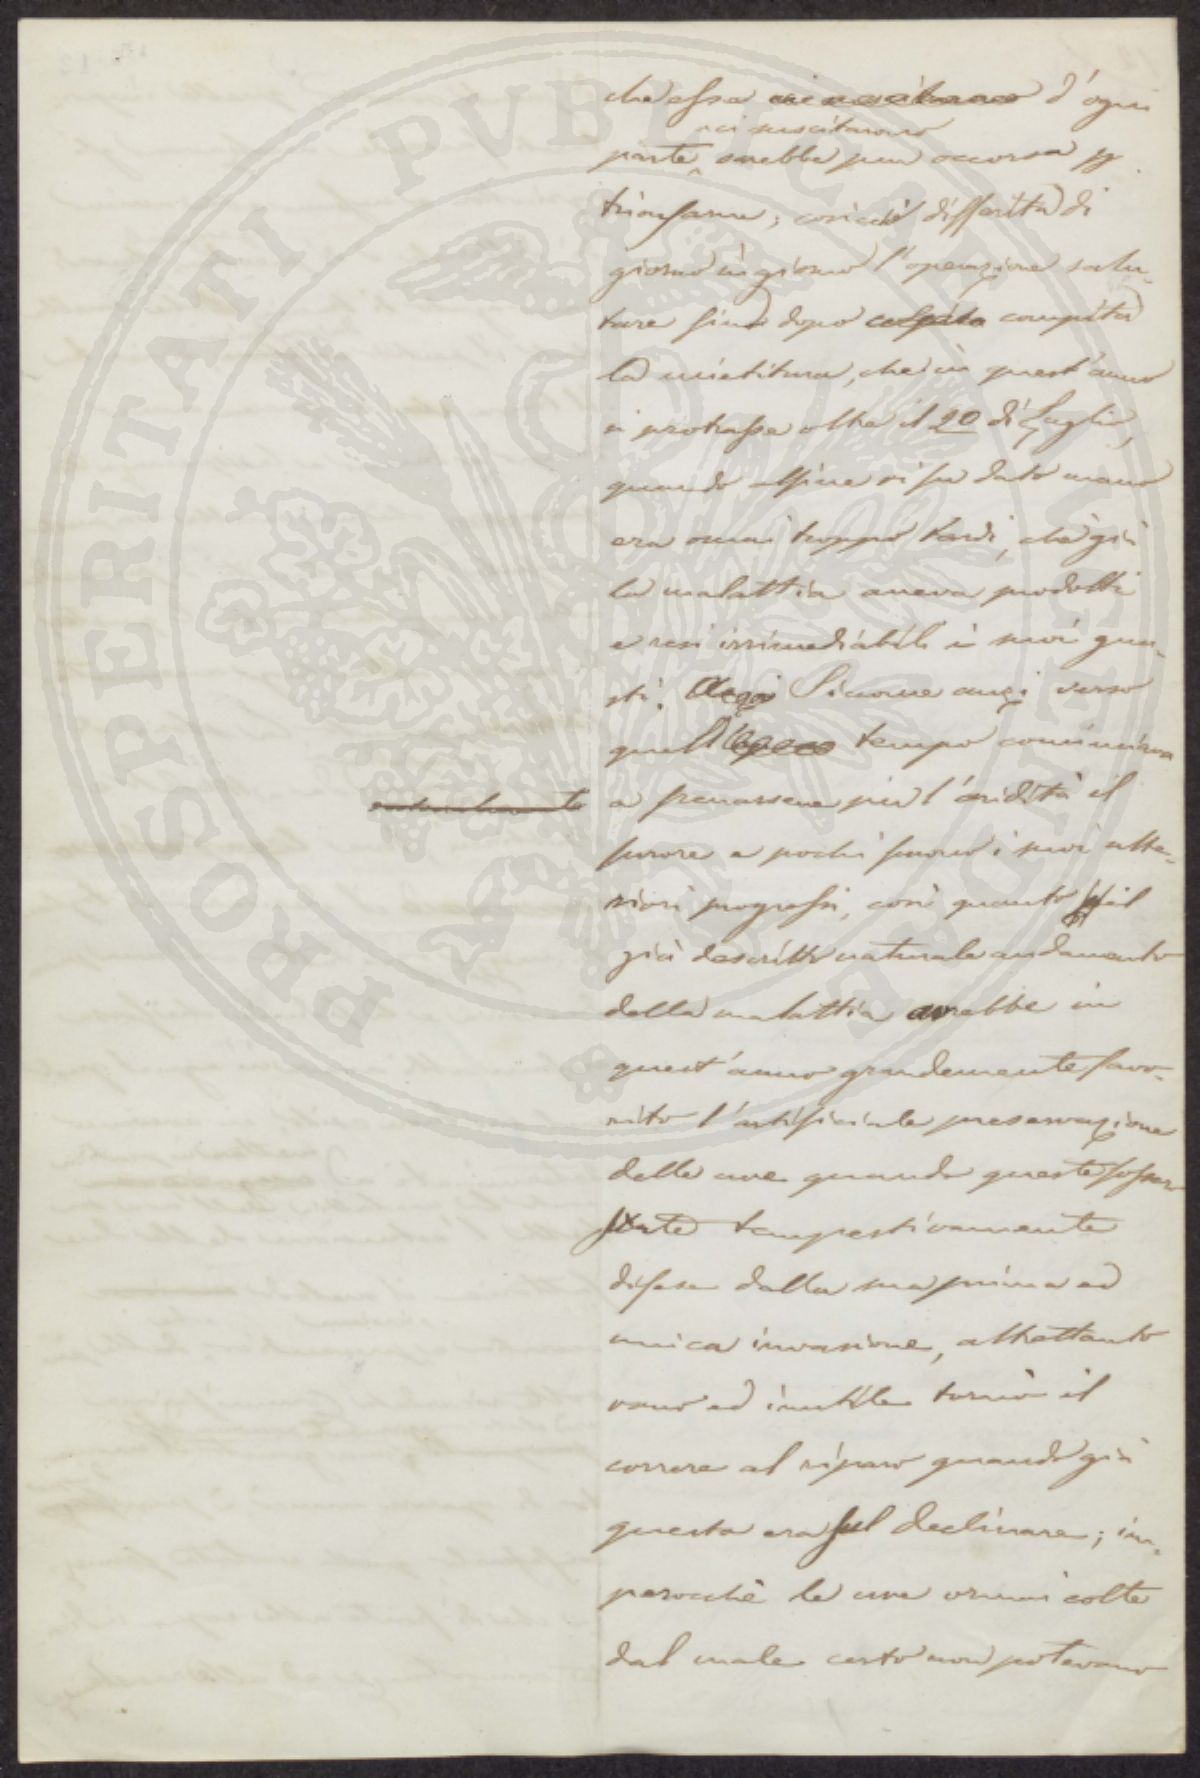 che essa d'ogni
ci suscitarono
parte, sarebbe pur occorsa p
trionfarne; cosicchè differita di
giorno in giorno l'operazione salu-
tare fino dopo compita
la mietitura, che in quest'anno
si protrasse oltre il 20 di Luglio,
quando alfine vi fu dato mano
era omai troppo tardi, chè già
la malattia aveva prodotti
e resi irrimediabili i suoi gua-
sti. Siccome anzi verso
quell' tempo cominciava
a frenarsene per l'aridità il
furore e pochi furono i suoi ulte-
riori progressi, così quanto il
già descritto naturale andamento
della malattia avrebbe in
quest'anno grandemente favo-
rito l'artificiale preservazione
delle uve quando queste fossero
state tempestivamente
difese dalla sua prima ed
unica invasione, altrettanto
vano ed inutile tornò il
correre al riparo quando già
questa era sul declinare; im-
perocchè le uve ormai colte
dal male certo non potevano
PROSPERITATI PVBLICAE AVGENDAE